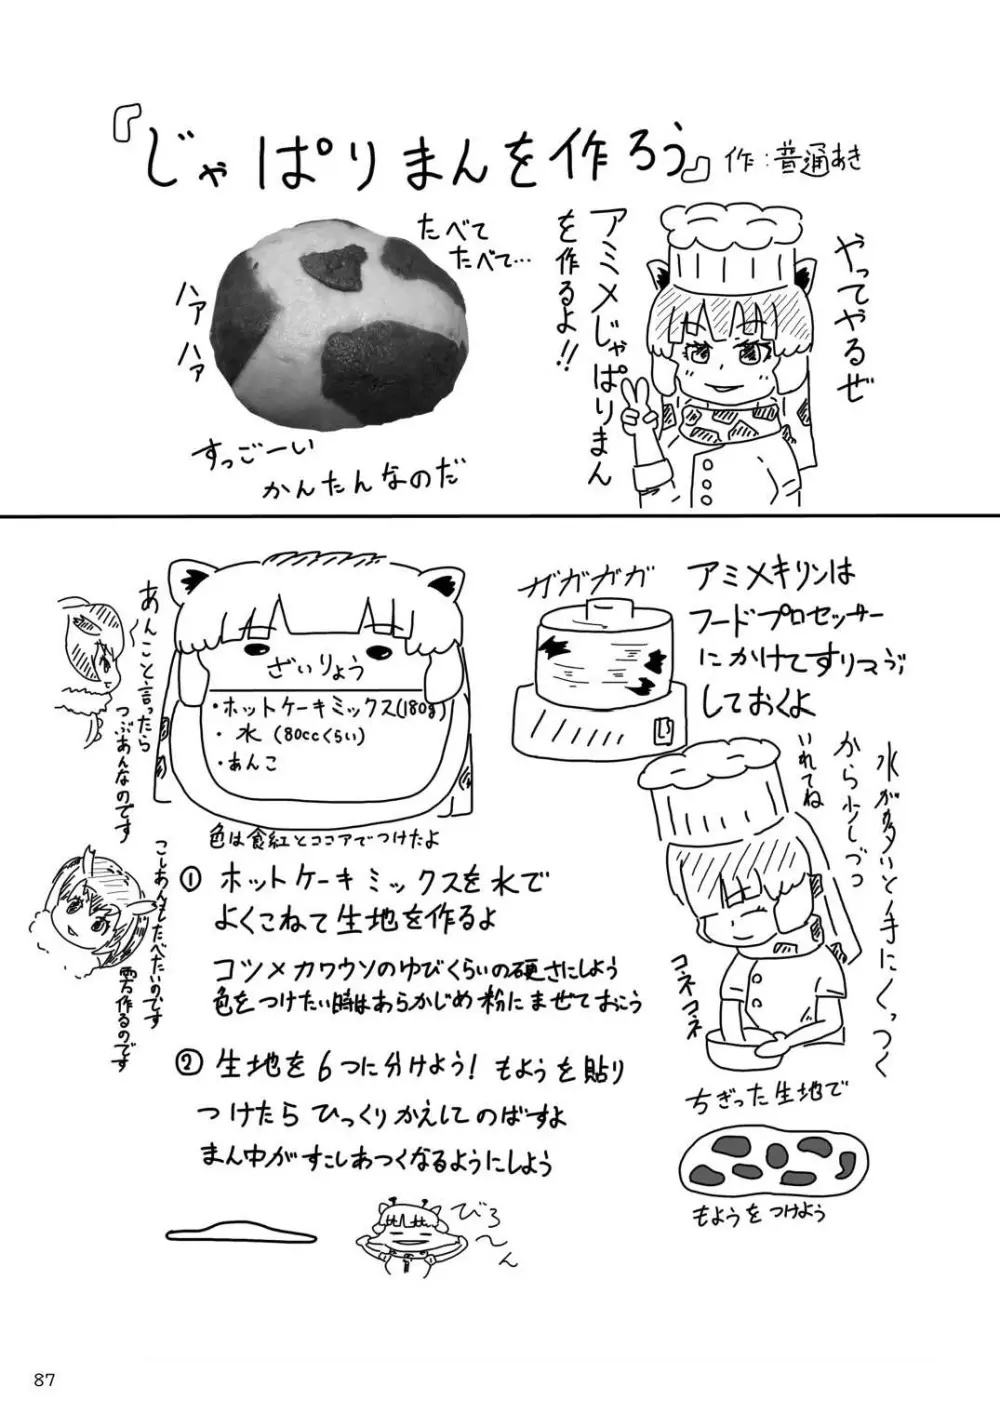 『じゃぱりまんを作ろう』作：普通あき
やってやるぜ
アミメじゃぱりまん
を作るよ!!
たべて
たべて…
ハァ
ハァ
すっごーい
かんたんなのだ
アミメキリンは
フードプロセッサー
にかけてすりつぶ
しておくよ
ガガガガ
ざいりょう
・ホットケーキミックス(180g)
・水(80ccくらい)
・あんこ
色は食紅とココアでつけたよ
あんこと言ったら
つぶあんなのです
こしあんもたべたいのです
作るのです
①ホットケーキミックスを水で
よくこねて生地を作るよ
コツメカワウソのゆびくらいの硬さにしよう
色をつけたい時はあらかじめ粉にまぜておこう
水が多いと手にくっつく
から少しづつ
いれてね
コネコネ
②生地を6つに分けよう！もようを貼り
つけたらひっくりかえしてのばすよ
まん中がすこしあつくなるようにしよう
ちぎった生地で
もようをつけよう
びろ
〜ん
87